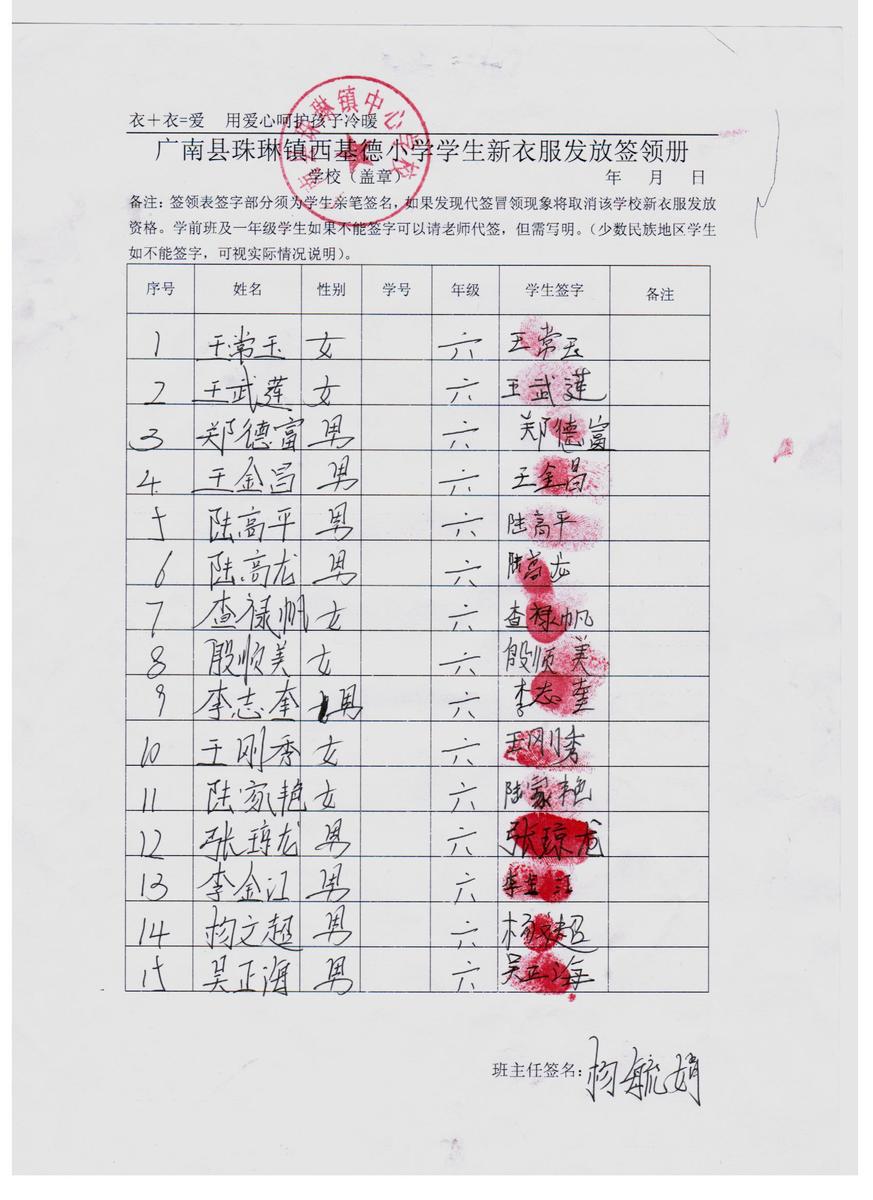 衣＋衣=爱 用爱心呵护孩子冷暖
广南县珠琳镇西基德小学学生新衣服发放签领册
南县珠琳镇中心学校
学校（盖章） 年 月 日
备注：签领表签字部分须为学生亲笔签名，如果发现代签冒领现象将取消该学校新衣服发放
资格。学前班及一年级学生如果不能签字可以请老师代签，但需写明。（少数民族地区学生
如不能签字，可视实际情况说明）。
序号 姓名 性别 学号 年级 学生签字 备注
1 王常玉 女 六 王常玉
2 王武莲 女 六 王武莲
3 郑德富 男 六 郑德富
4 王金昌 男 六 王金昌
5 陆高平 男 六 陆高平
6 陆高龙 男 六 陆高龙
7 查禄帆 女 六 查禄帆
8 殷顺美 女 六 殷顺美
9 李志奎 男 六 李志奎
10 王刚秀 女 六 王刚秀
11 陆家艳 女 六 陆家艳
12 张琼龙 男 六 张琼龙
13 李金江 男 六 李金江
14 杨文超 男 六 杨文超
15 吴正海 男 六 吴正海
班主任签名：杨毓娟